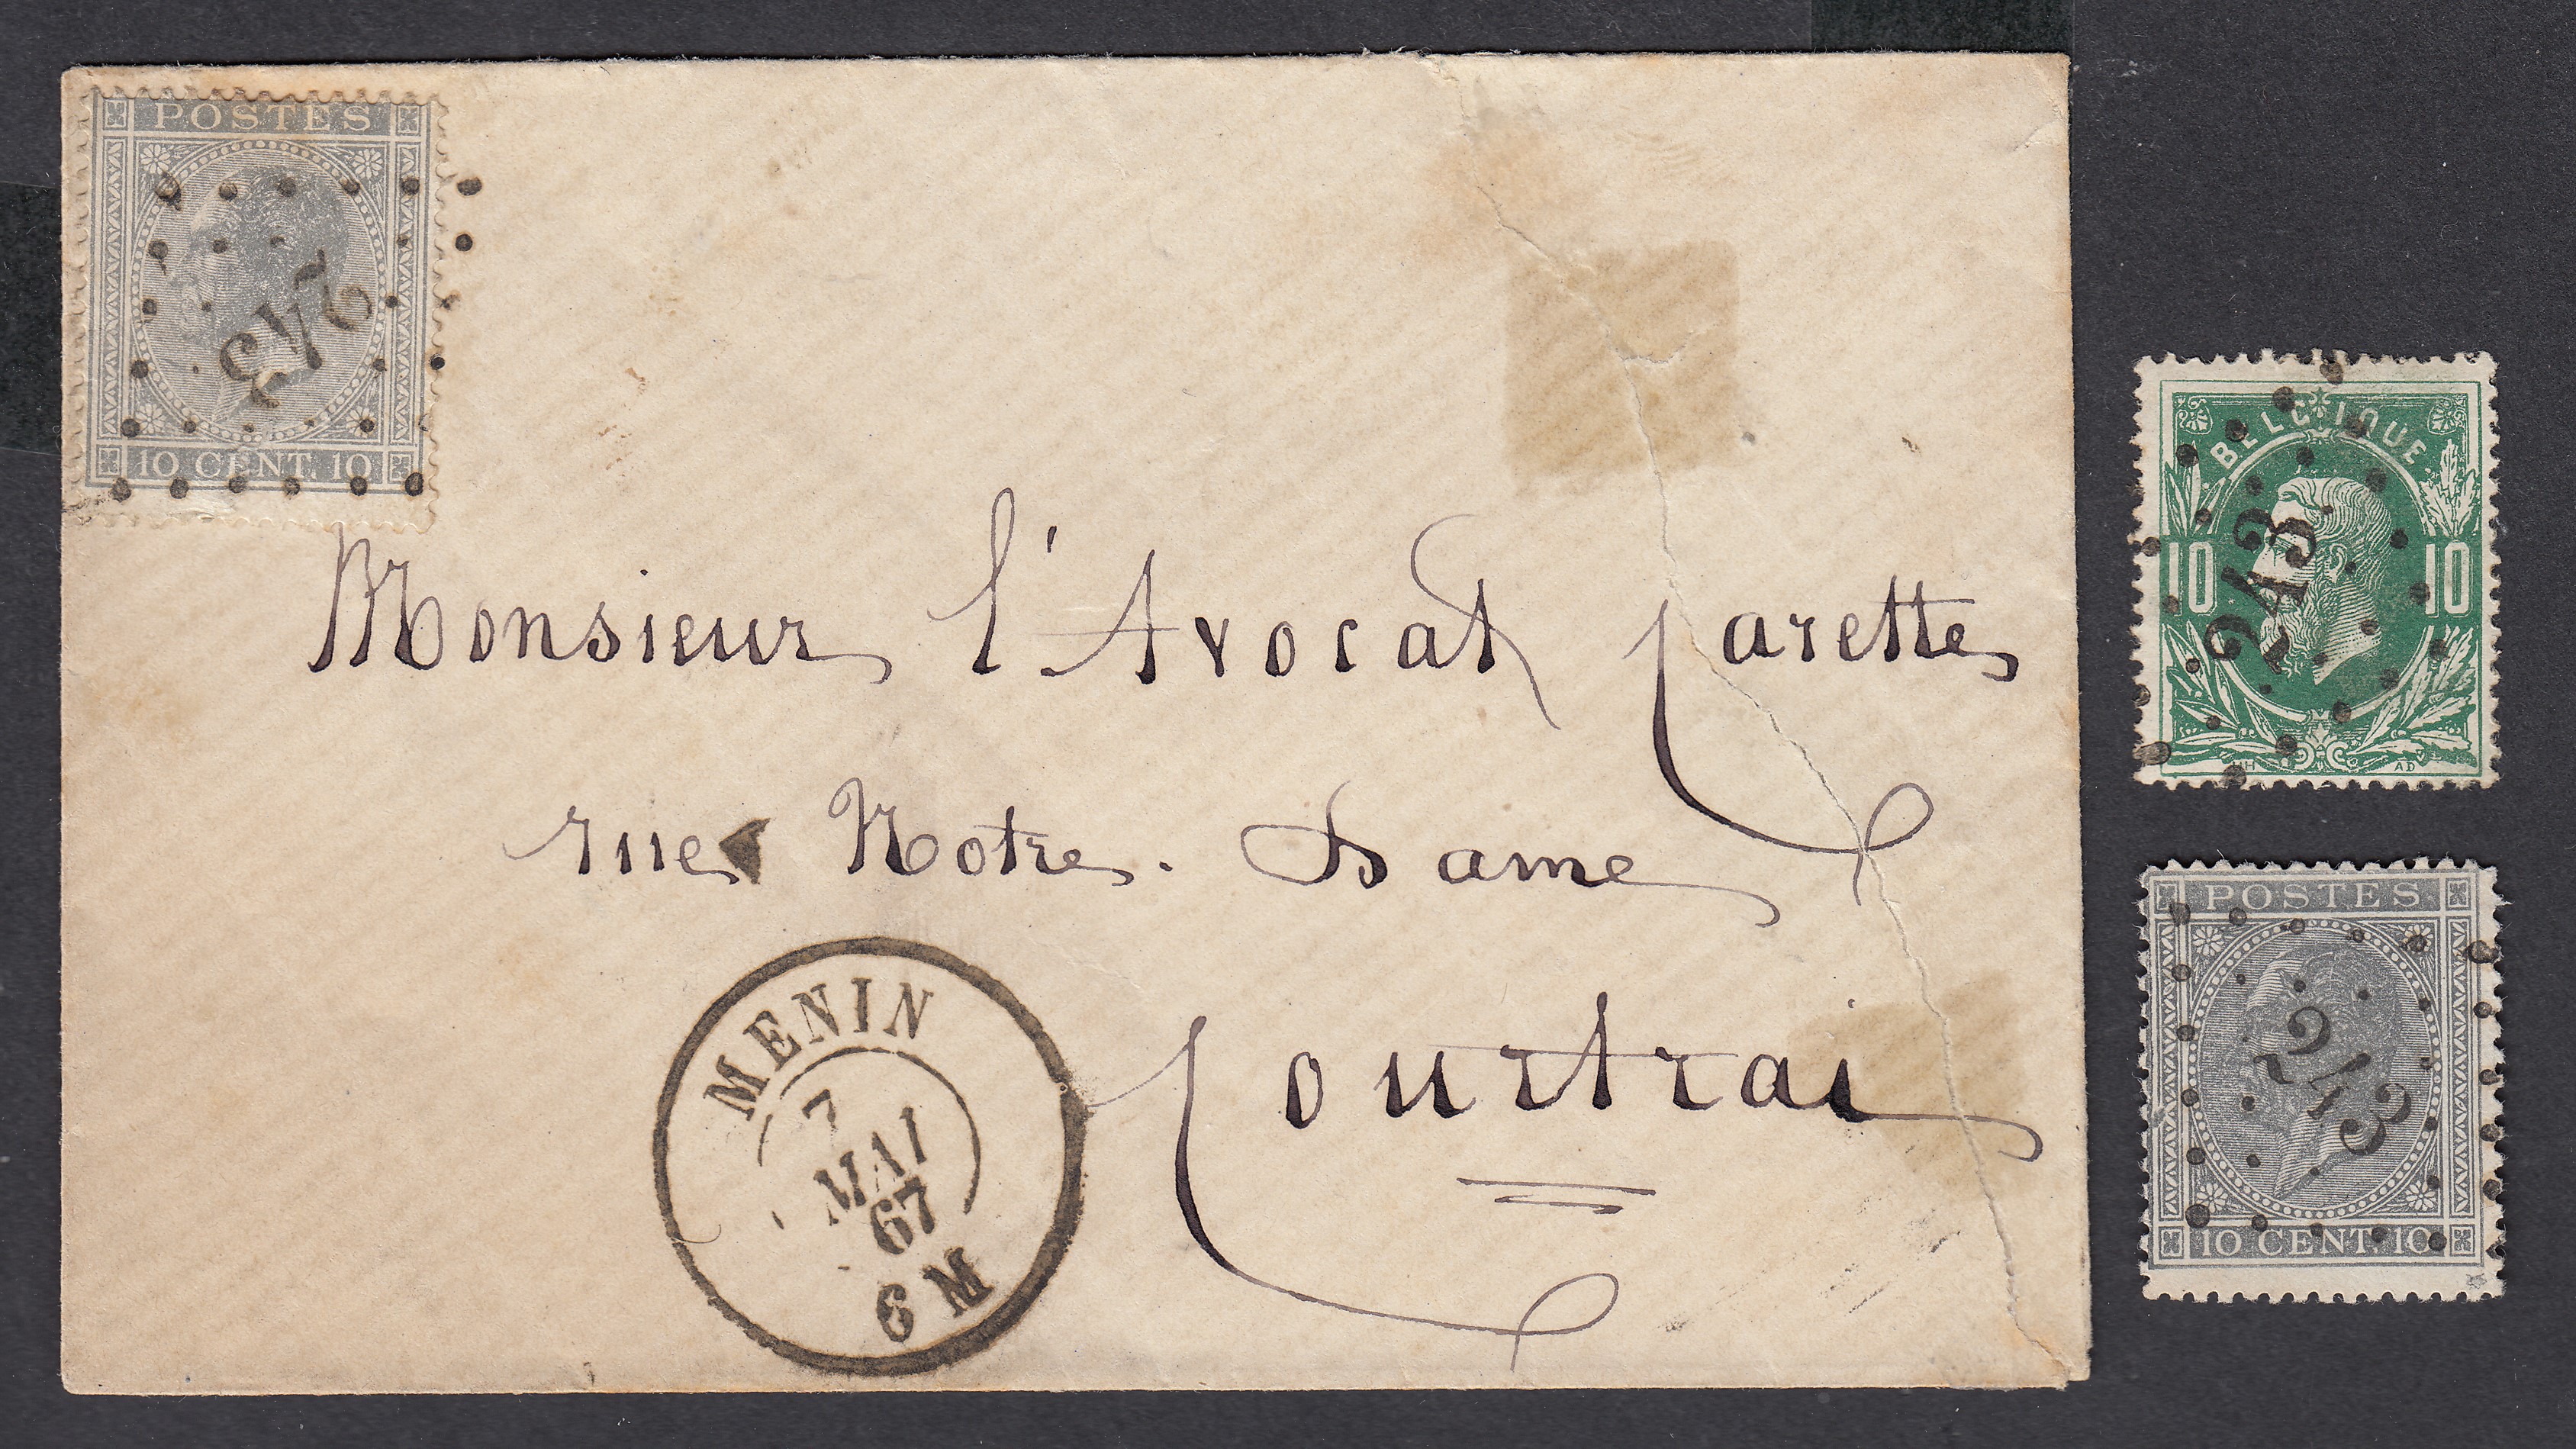 POSTES
243
10 CENT. 10
Monsieur l'Avocat
rue Notre-Dame
Courtrai
MENIN
7
MAI
67
6 M
BELGIQUE
10 10
243
HH AD
POSTES
243
10 CENT. 10